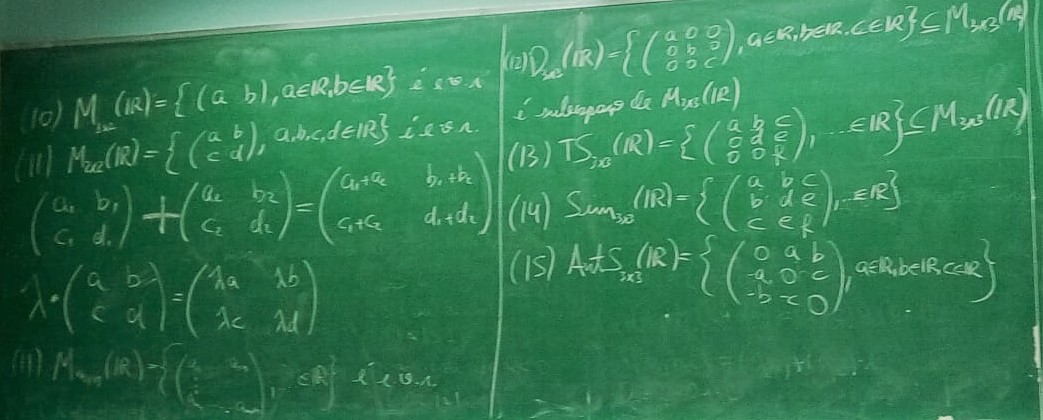 (10) M₁ₓ₂(ℝ) = { (a b), a∈ℝ, b∈ℝ } é e.v.r
(11) M₂ₓ₂(ℝ) = { (a b; c d), a,b,c,d∈ℝ } é e.v.r.
(a₁ b₁; c₁ d₁) + (a₂ b₂; c₂ d₂) = (a₁+a₂ b₁+b₂; c₁+c₂ d₁+d₂)
λ·(a b; c d) = (λa λb; λc λd)
(11) M (ℝ) = { ( ), ... ∈ℝ } é e.v.r
(12) D₃ₓ₃(ℝ) = { (a 0 0; 0 b 0; 0 0 c), a∈ℝ, b∈ℝ, c∈ℝ } ⊆ M₃ₓ₃(ℝ)
é subespaço de M₃ₓ₃(ℝ)
(13) TS₃ₓ₃(ℝ) = { (a b c; 0 d e; 0 0 f), ... ∈ℝ } ⊆ M₃ₓ₃(ℝ)
(14) Sim₃ₓ₃(ℝ) = { (a b c; b d e; c e f), ... ∈ℝ }
(15) AntS₃ₓ₃(ℝ) = { (0 a b; -a 0 c; -b -c 0), a∈ℝ, b∈ℝ, c∈ℝ }